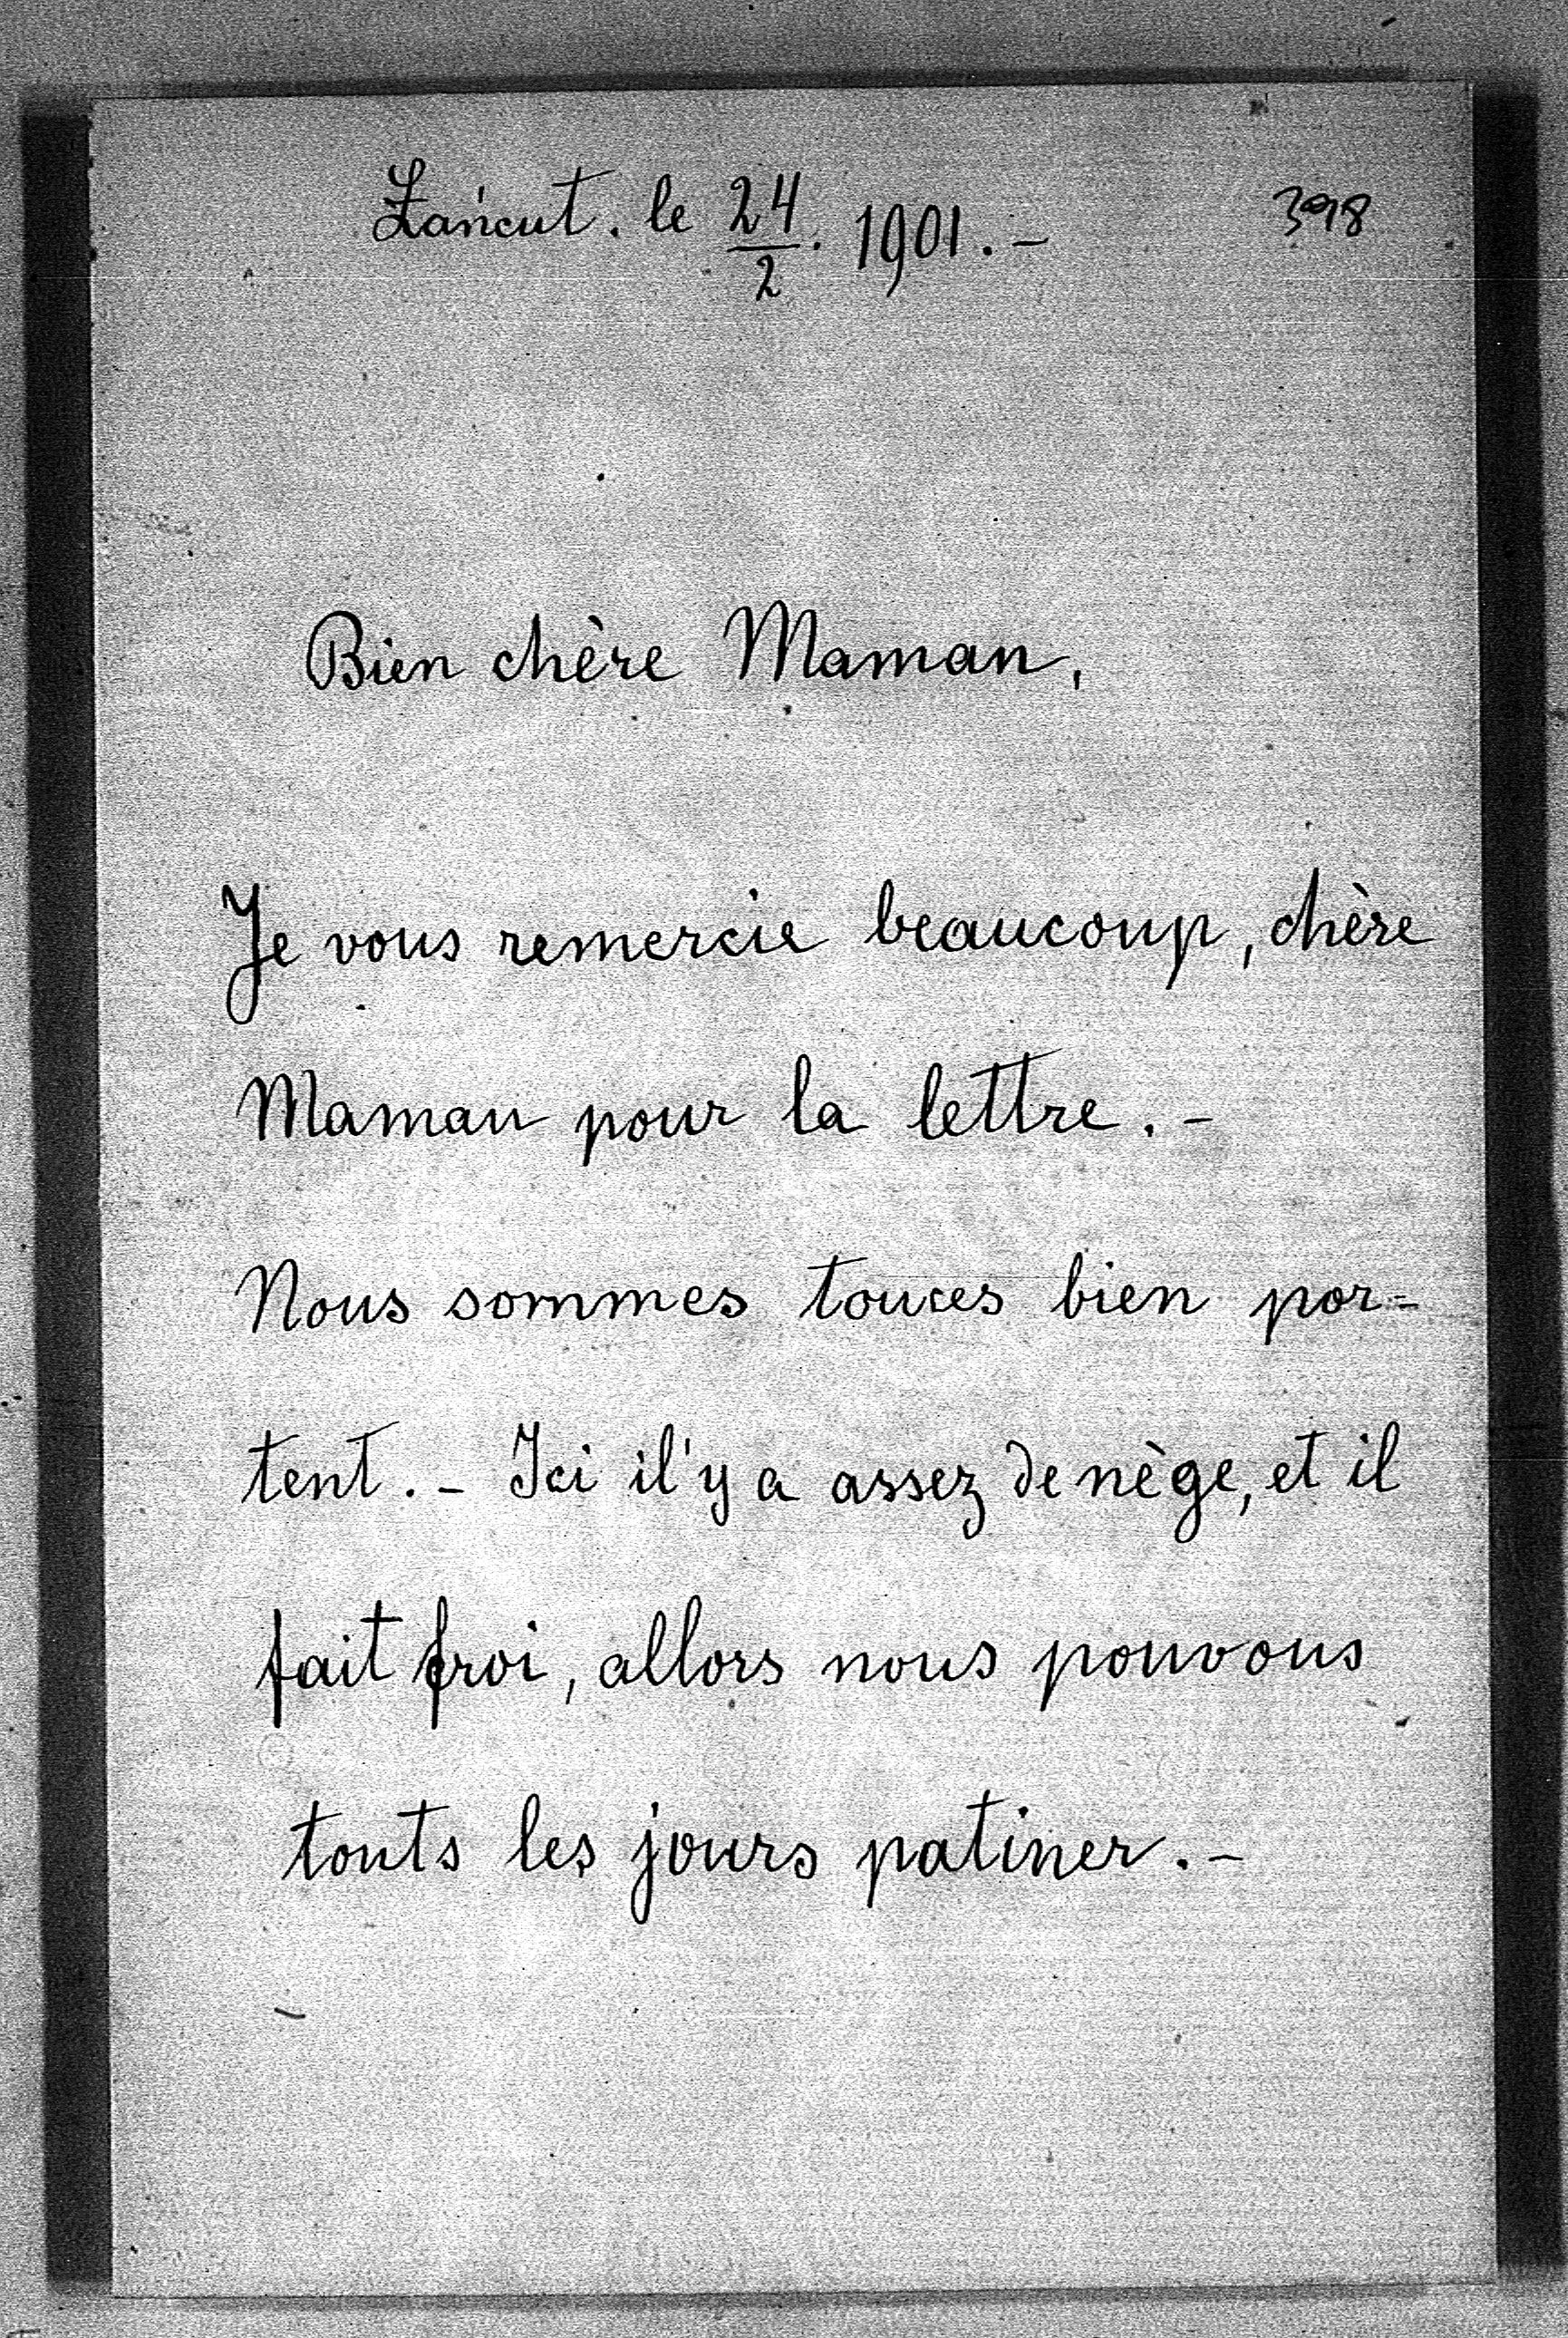 Łańcut. le 24/2. 1901. -
398
Bien chère Maman,
Je vous remercie beaucoup, chère
Maman pour la lettre. -
Nous sommes toutes bien por=
tent. - Ici il'y a assez de nège, et il
fait froi, allors nous pouvons
touts les jours patiner. -